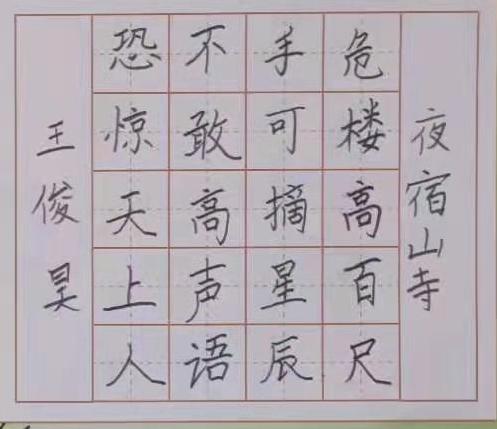 夜宿山寺
危楼高百尺
手可摘星辰
不敢高声语
恐惊天上人
王俊昊